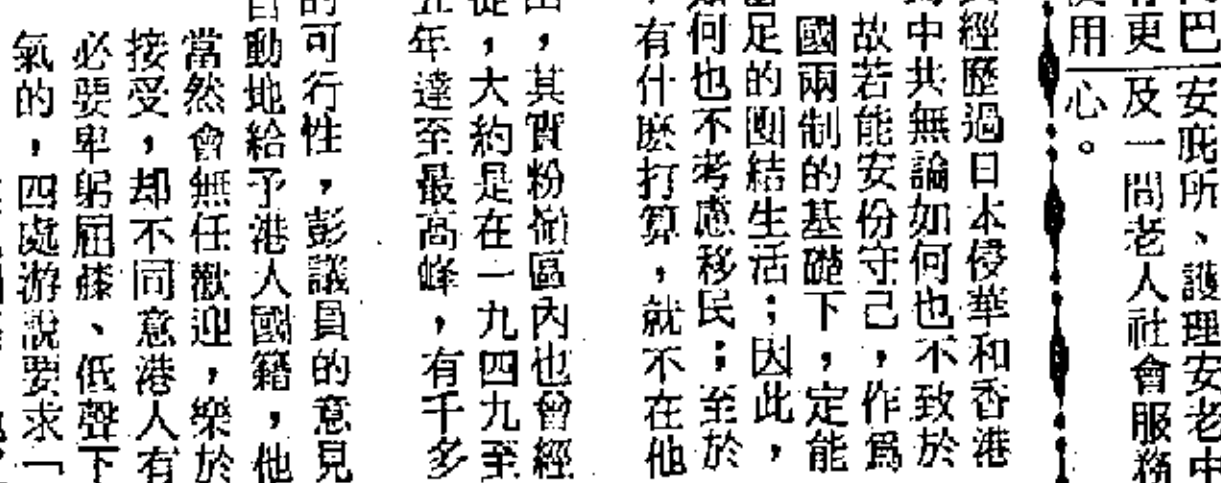 巴安庇所、護理安老中
更及一間老人社會服務
用心。
經歷過日本侵華和香港
中共無論如何也不致於
故若能安份守己，作爲
國兩制的基礎下，定能
足的團結生活；因此，
何也不考慮移民；至於
有什麽打算，就不在他
，其實粉嶺區內也曾經
，大約是在一九四九至
年達至最高峰，有千多
的可行性，彭議員的意見
自動地給予港人國籍，他
當然會無任歡迎，樂於
接受，却不同意港人有
必要卑躬屈膝、低聲下
氣的，四處游說要求「